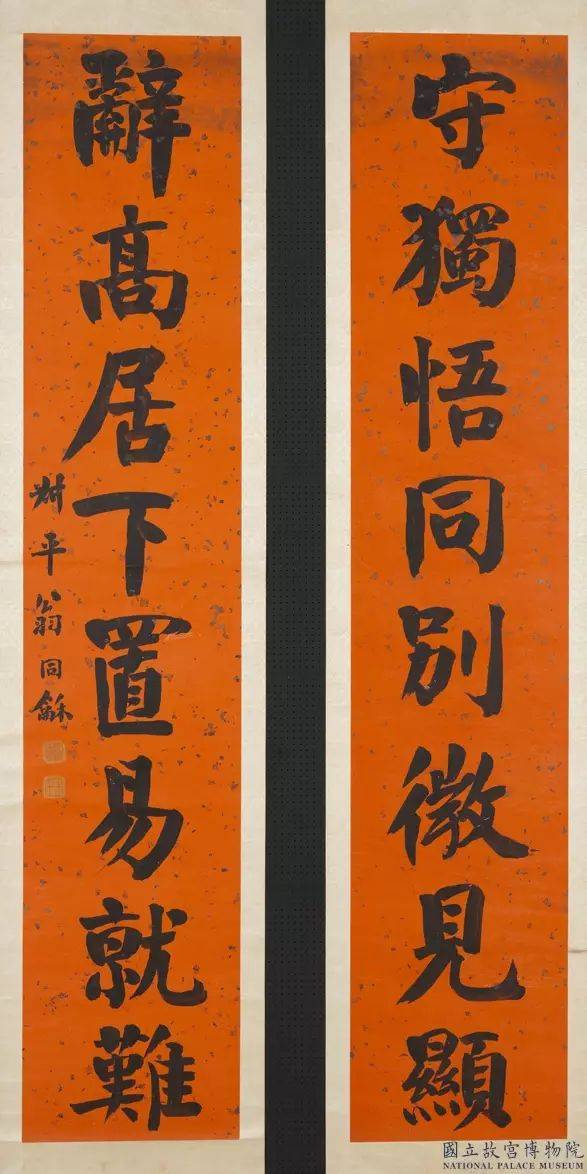 守獨悟同別微見顯
辭高居下置易就難
叔平翁同龢
國立故宮博物院
NATIONAL PALACE MUSEUM